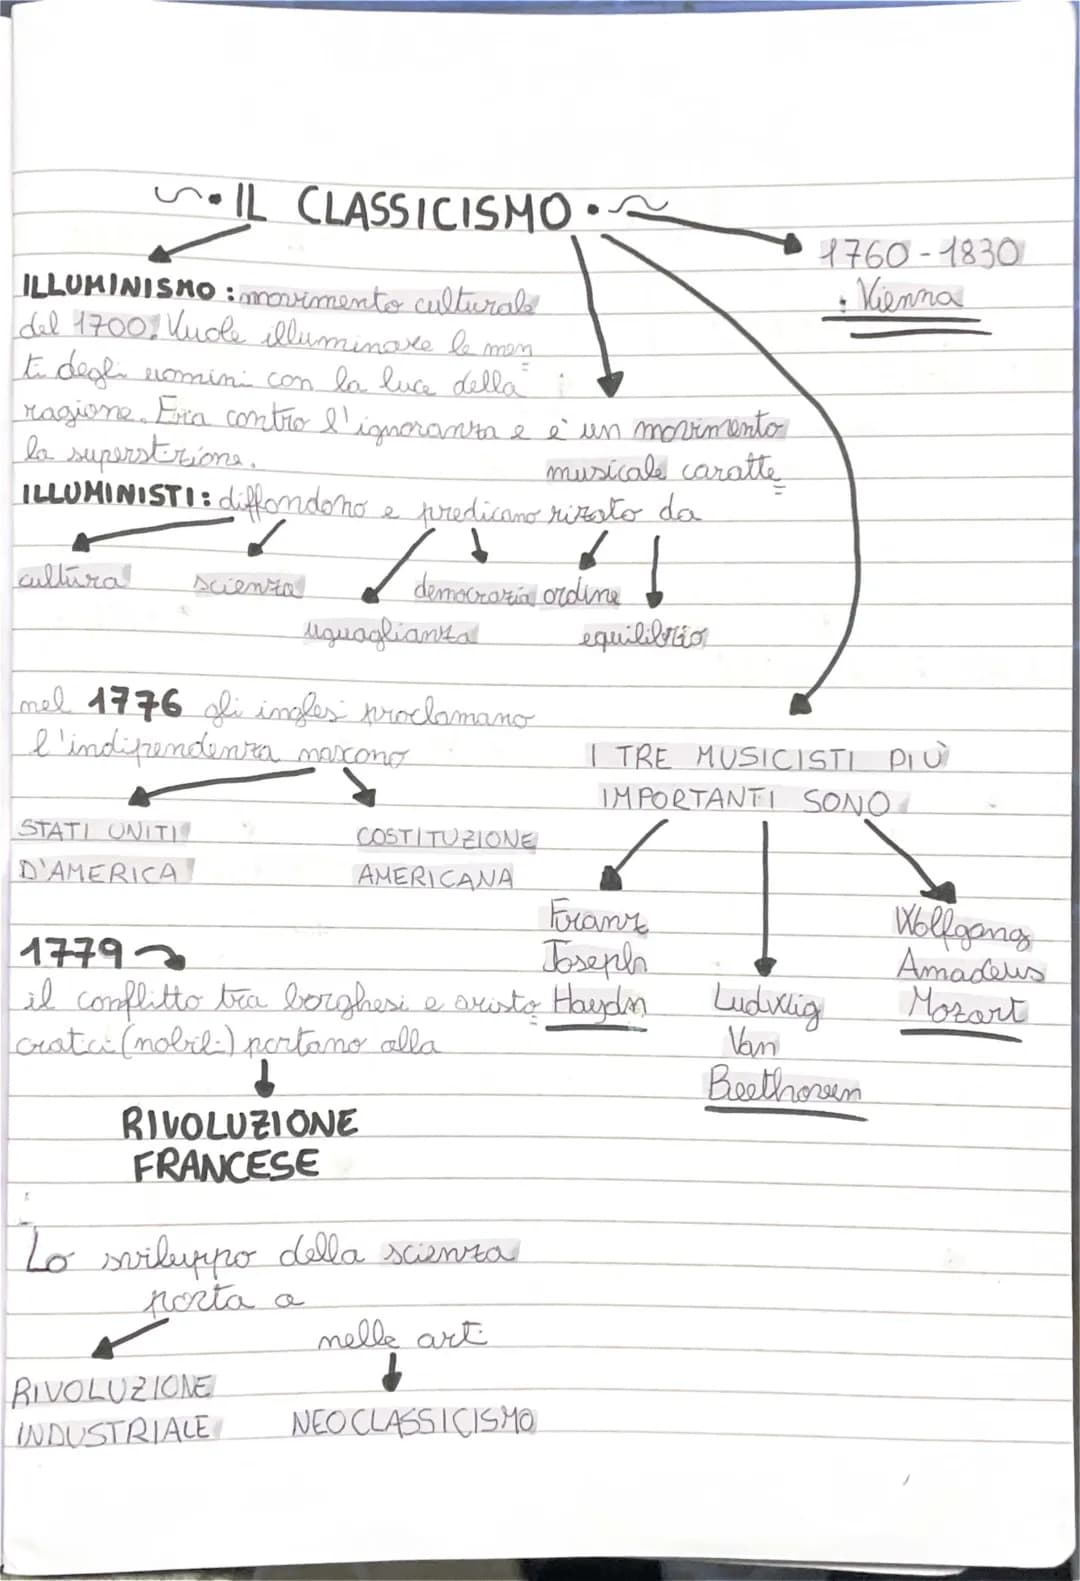 IL CLASSICISMO
1760-1830
: Vienna
ILLUMINISMO: movimento culturale
del 1700. Vuole illuminare le men
ti degli uomini con la luce della
ragione. Era contro l'ignoranza e
la superstizione.
è un movimento
musicale caratte
rizato da
ordine
equilibrio
ILLUMINISTI: diffondono e predicano
cultura
scienza
uguaglianza
democrazia
nel 1776 gli inglesi proclamano
l'indipendenza nascono
STATI UNITI
D'AMERICA
COSTITUZIONE
AMERICANA
I TRE MUSICISTI PIÙ
IMPORTANTI SONO
Franz
Joseph
Haydn
Ludwig
Van
Beethoven
Wolfgang
Amadeus
Mozart
1779
il conflitto tra borghesi e aristo
cratici (nobili) portano alla
RIVOLUZIONE
FRANCESE
Lo sviluppo della scienza
porta a
RIVOLUZIONE
INDUSTRIALE
nelle arti
NEOCLASSICISMO